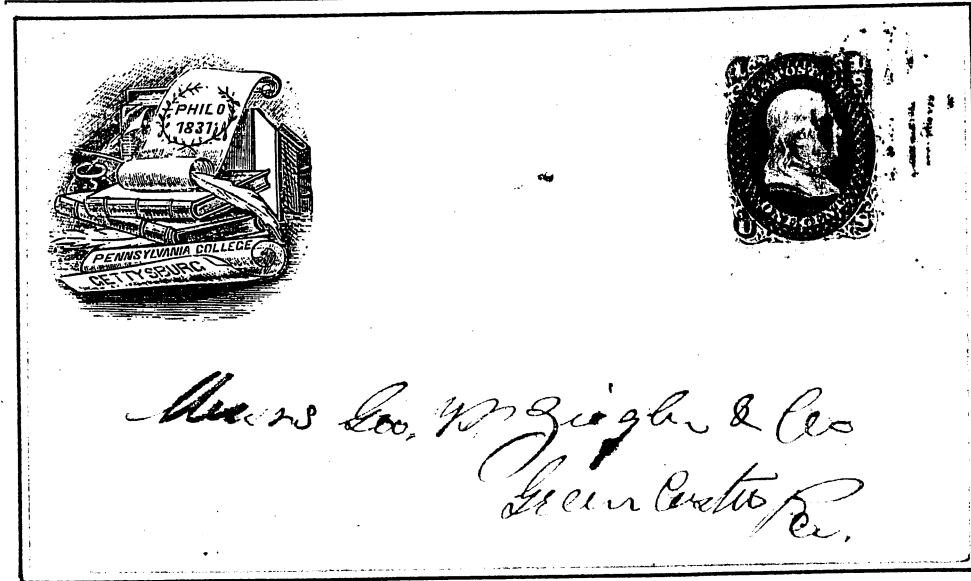 PHILO
1831
PENNSYLVANIA COLLEGE
GETTYSBURG
ONE CENT
U S
Messrs Geo. W Ziegler & Co
Green Castle
Pa.